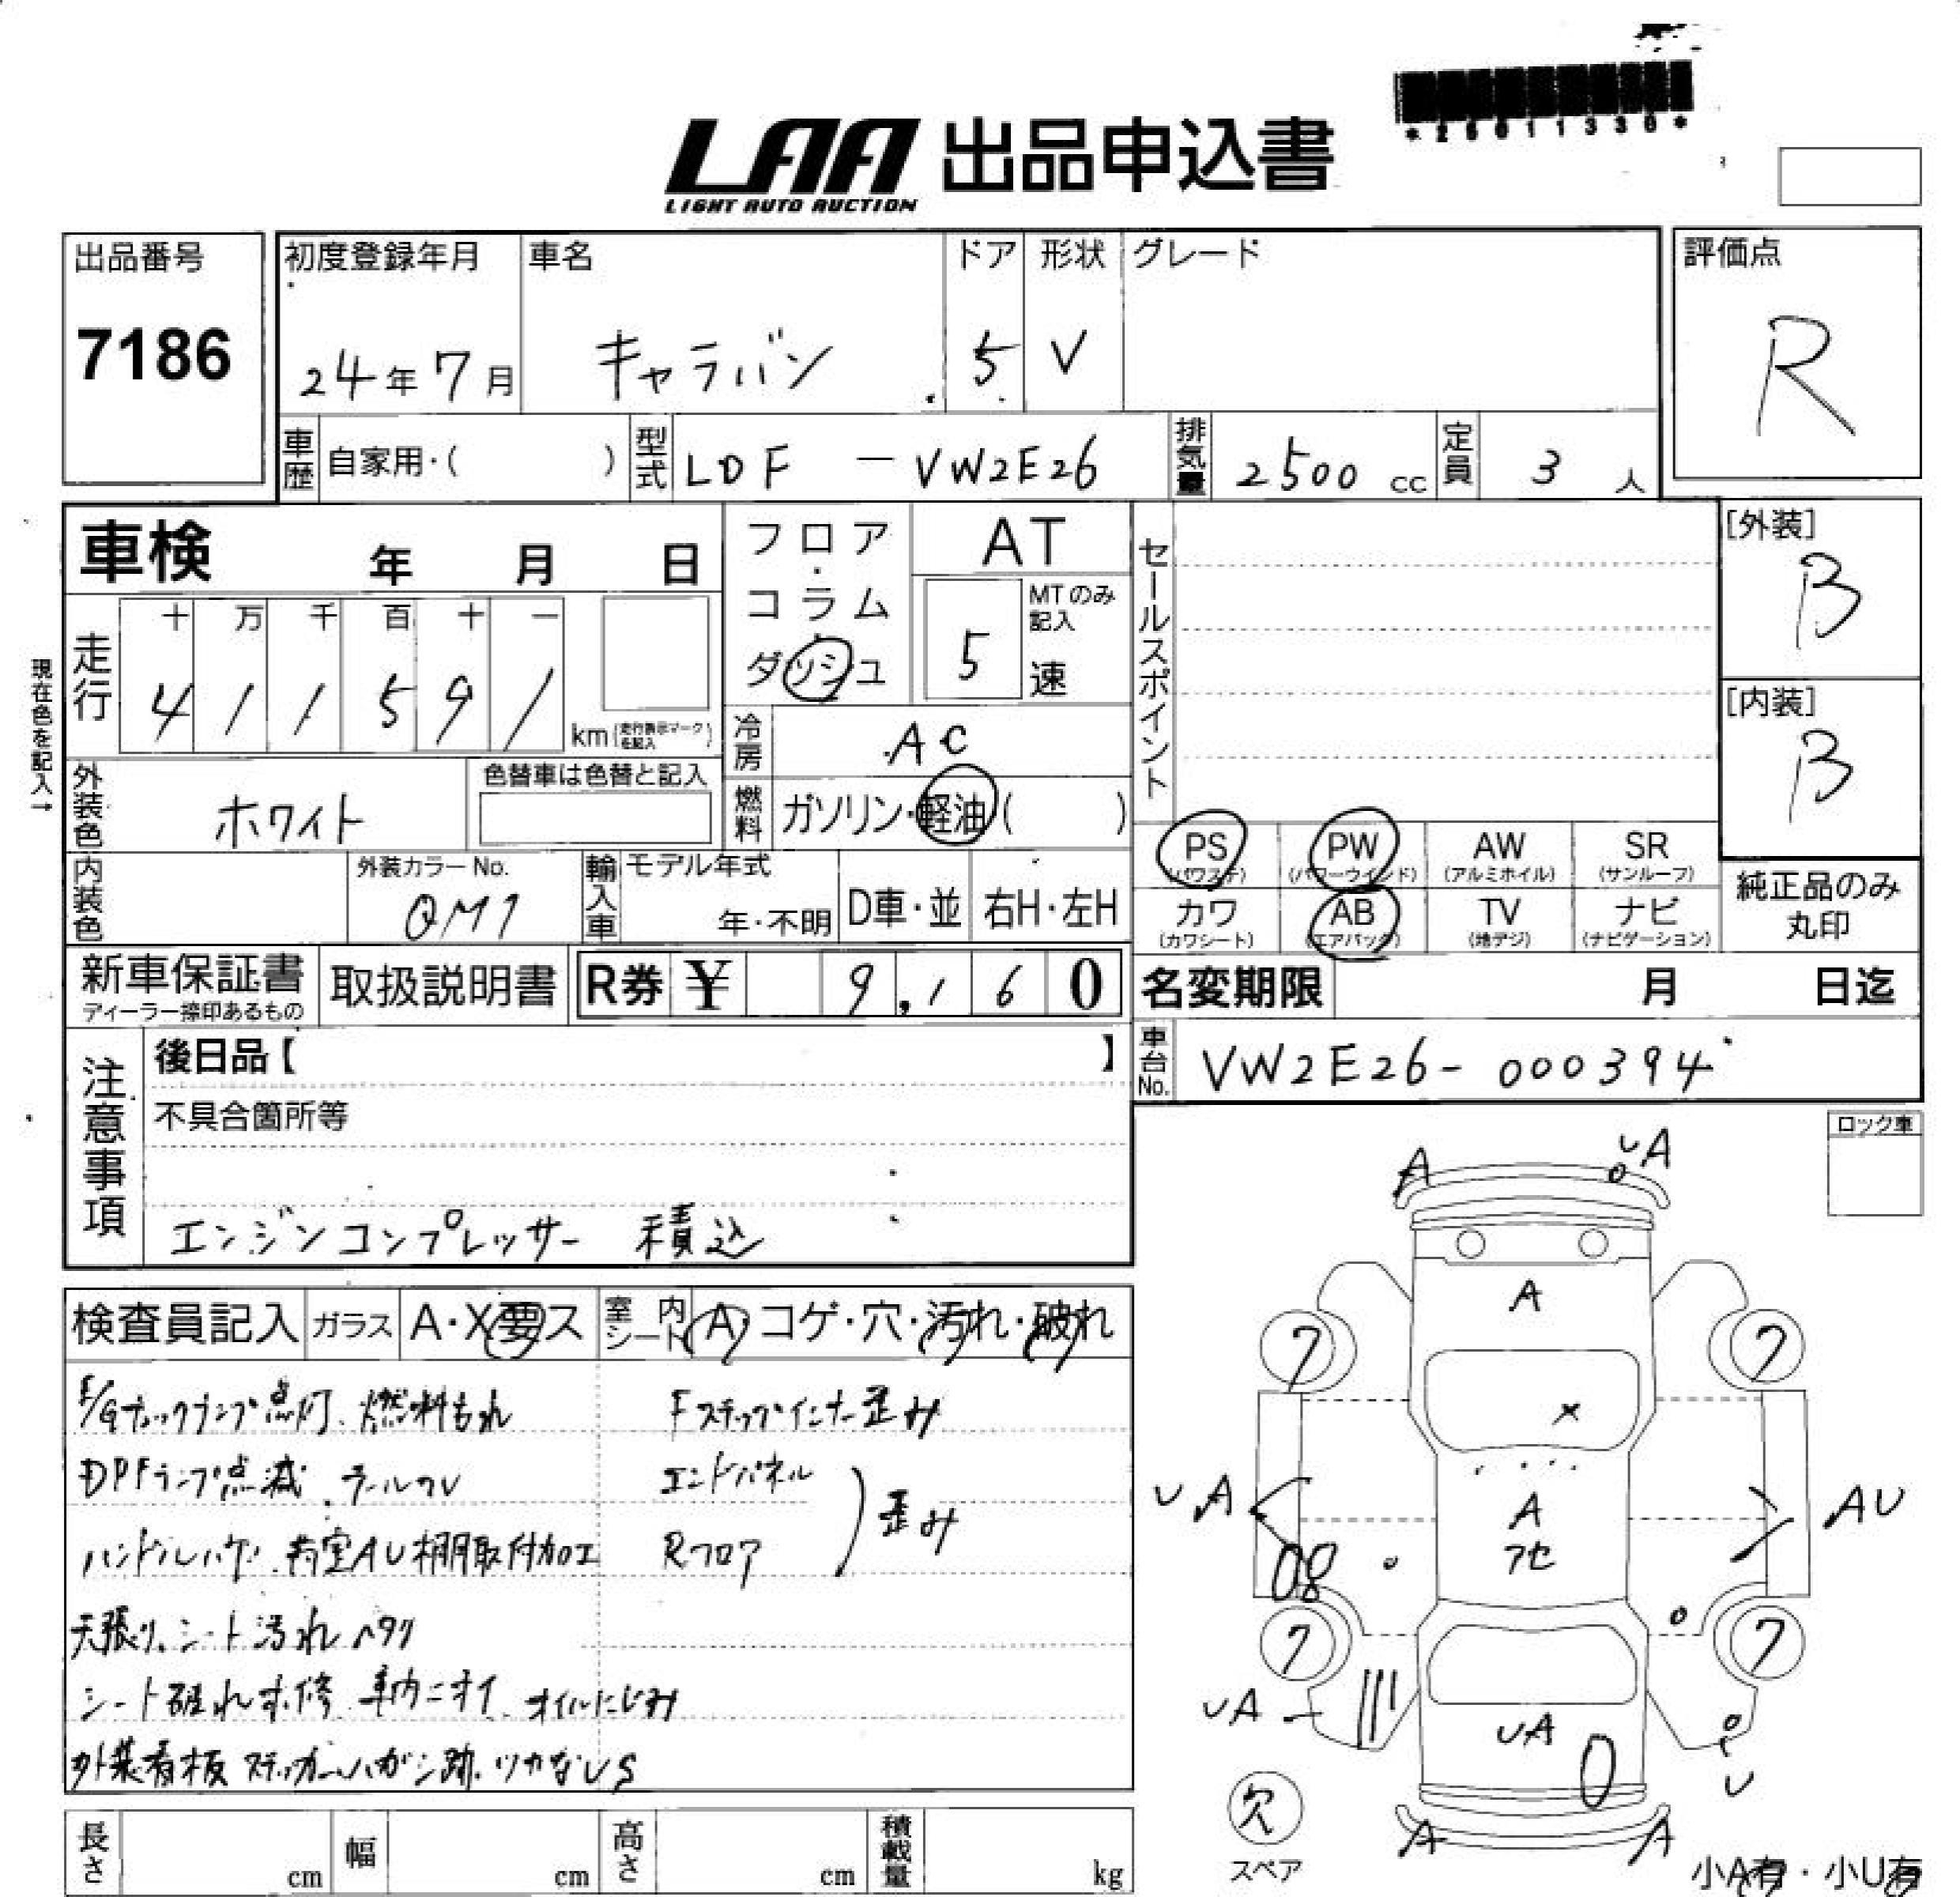 *25011330*
LAA 出品申込書
LIGHT AUTO AUCTION
出品番号
7186
初度登録年月
24年7月
車名
キャラバン
ドア
5
形状
V
グレード
評価点
R
車歴 自家用・( )
型式 LDF - VW2E26
排気量 2500 cc
定員 3 人
車検 年 月 日
現在色を記入→
走行
十 万 千 百 十 一
4 1 1 5 9 1
km (走行表示マークを記入)
フロア・コラム・ダッシュ
AT
MTのみ記入
5 速
冷房 AC
燃料 ガソリン・軽油( )
セールスポイント
[外装]
B
[内装]
B
外装色 ホワイト
色替車は色替と記入
内装色
外装カラーNo.
QM1
輸入車 モデル年式
年・不明
D車・並
右H・左H
PS (パワステ)
PW (パワーウインド)
AW (アルミホイル)
SR (サンルーフ)
カワ (カワシート)
AB (エアバッグ)
TV (地デジ)
ナビ (ナビゲーション)
純正品のみ丸印
新車保証書
ディーラー捺印あるもの
取扱説明書
R券 ¥ 9,160
名変期限 月 日迄
車台No. VW2E26-000394
注意事項
後日品【 】
不具合箇所等
エンジンコンプレッサー 積込
ロック車
検査員記入 ガラス A・X要ス
室内シート A・コゲ・穴・汚れ・破れ
E/Gチェックランプ点灯、燃料もれ
Fステップインナー歪み
DPFランプ点滅
エンドパネル
Rフロア
歪み
荷室AU棚取付加工
天張り、シート汚れヘタリ
シート破れ 車内ニオイ、オイルにじみ
外装看板ステッカーハガシ跡
A
UA
A
7
7
X
UA
A
アセ
AU
08
7
7
UA
UA
U
A
A
欠
スペア
小A有・小U有
長さ cm
幅 cm
高さ cm
積載量 kg